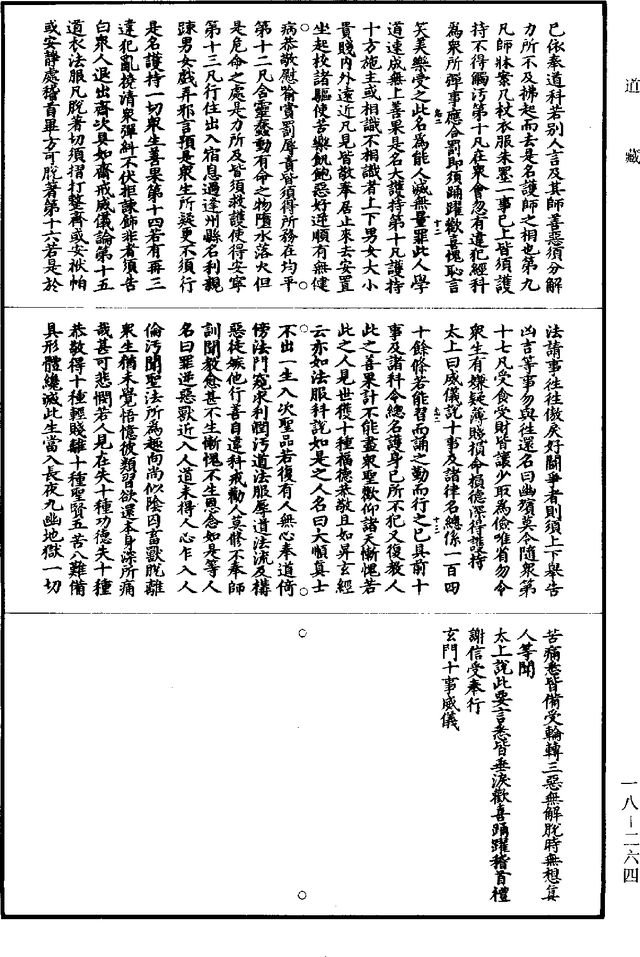 道藏
已依奉道科若別人言及其師善惡須分解
力所不及拂起而去是名護師之相也第九
凡師牀案几杖衣服朱墨一事已上皆須護
持不得觸污第十凡在衆會忽有違犯經科
為衆所彈事應合罰即須踊躍歡喜愧恥言
笑美樂受之此名為能人滅無量罪此人學
道速成無上善果是名大護持第十凡護持
十方施主或相識不相識者上下男女大小
貴賤內外遠近凡見皆敬奉居止來去安置
坐起校諸驅使苦樂飢飽惡好逆順有無健
病恭敬慰喻賞罰辱責皆須得所務在均平
第十二凡含靈蠢動有命之物墮水落火但
是危命之處是力所及皆須救護使得安寧
第十三凡行住出入宿息過達州縣名利親
踈男女戲弄邪言預是衆生所疑更不須行
是名護持一切衆生善果第十四若有再三
違犯亂撓清衆彈糾不伏拒諫飾非者須告
白衆人退出齋次具如齋戒威儀論第十五
道衣法服凡脫著切須摺打整齊或安袱帕
或安静處稽首畢方可脫著第十六若是於
法請事往往傲戾好鬭爭者則須上下舉告
凶言等事勿與往還名曰幽須莫令隨衆第
十七凡受食受財皆讓少取為儉唯省勿令
衆生有嫌疑薄賤損命損德深得護持
太上曰威儀說十事及諸律名總係一百四
十餘條若能習而誦之勤而行之已具前十
事及諸科令總名護身已所不犯又復教人
此之善果計不能盡衆聖歡仰諸天慚愧若
此之人見世獲十種福德恭敬且如昇玄經
云亦如法服科說如是之人名曰大順真士
不出一生入次聖品若復有人無心奉道倚
傍法門覓求利潤污道法服辱道法流及構
惡徒嫉他行善自違科戒勸人莫修不奉師
訓聞教愈甚不生慚愧不生恩念如是等人
名曰罪逆惡獸近入人道未得人心乍入人
倫污聞聖法所為趣向尚似陰因畜獸脫離
衆生猶未覺悟憶彼類習欲還本身深所痛
哉甚可悲憫若人見在失十種功德失十種
恭敬得十種輕賤離十種聖賢五苦八難備
具形體纔滅此生當入長夜九幽地獄一切
苦痛悉皆備受輪轉三惡無解脫時無想真
人等聞
太上說此要言悉皆垂淚歡喜踊躍稽首禮
謝信受奉行
玄門十事威儀
一八—二六四